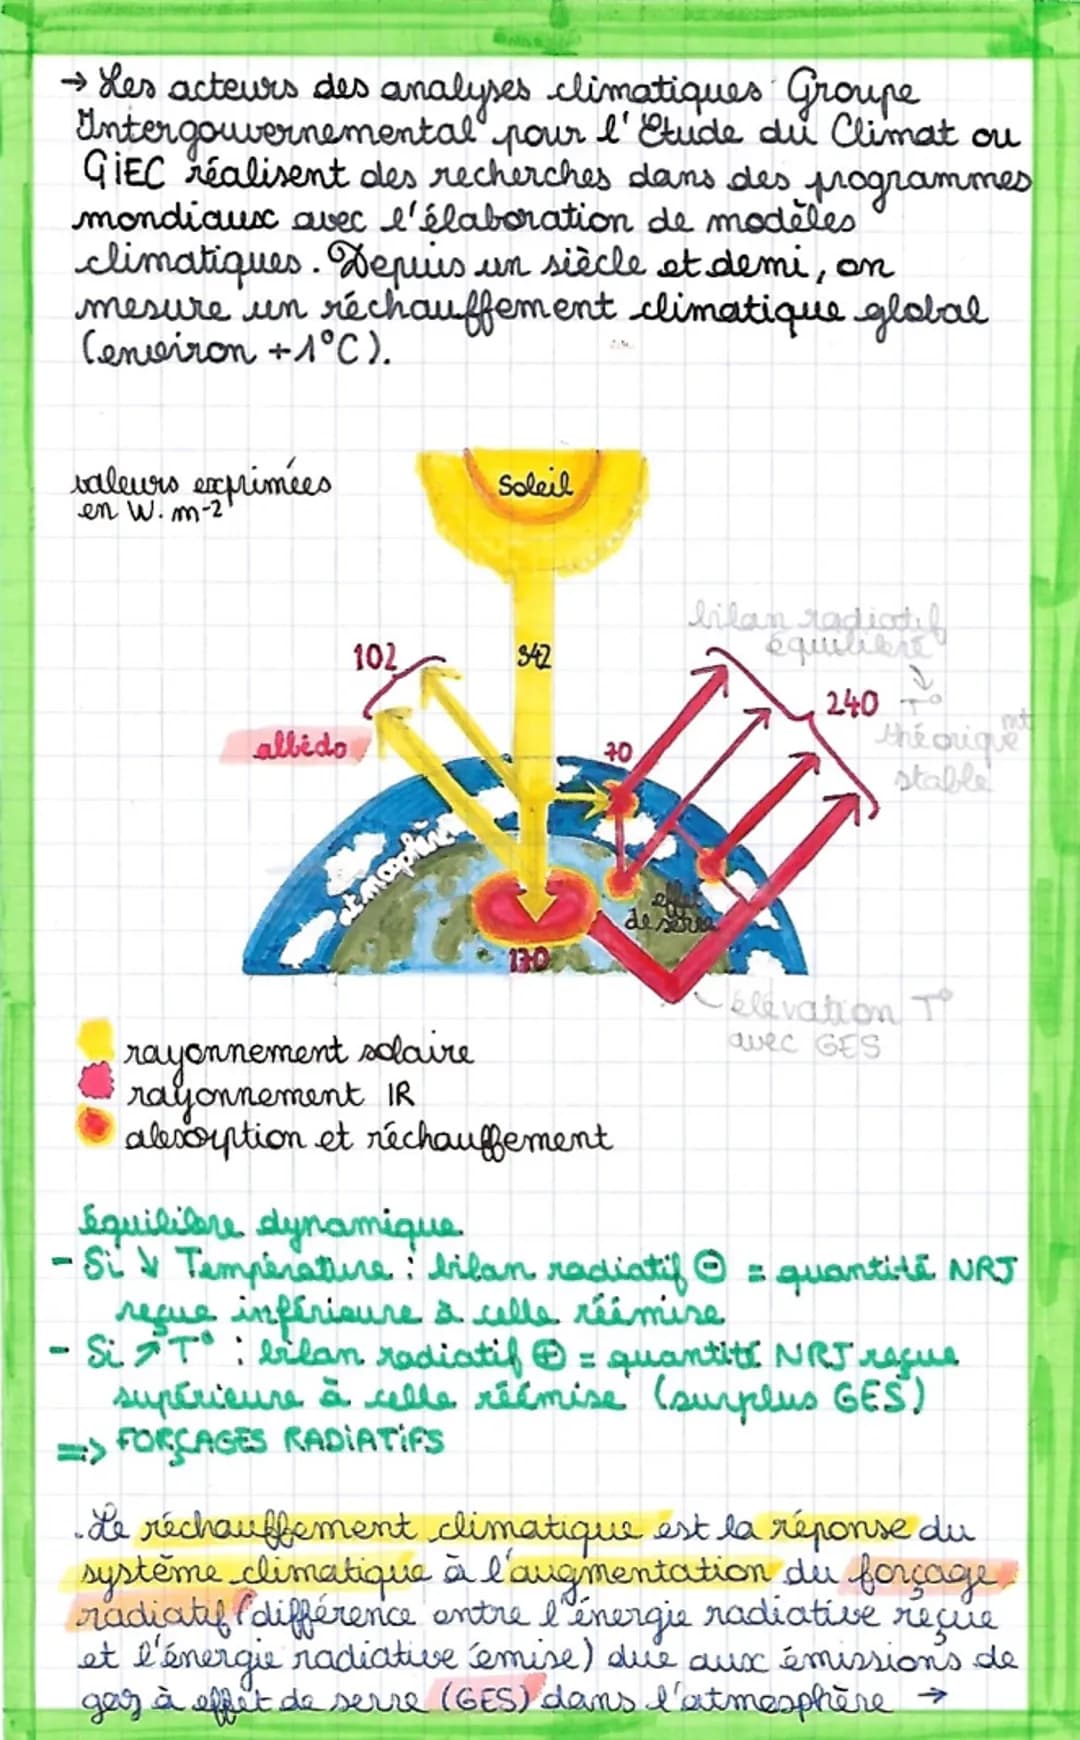 → Les acteurs des analyses climatiques Groupe
Intergouvernemental pour l'Etude du Climat ou
GiEC réalisent des recherches dans des programmes
mondiaux avec l'élaboration de modèles
climatiques. Depuis un siècle et demi, on
mesure un réchauffement climatique global
(environ +1°C).
valeurs exprimées
en W.m-2
Soleil
342
102
albédo
bilan radiatif
équilibré
↓
T°
théorique mt
stable
240
70
atmosphère
effet
de serre
170
élévation T°
avec GES
rayonnement solaire
rayonnement IR
absorption et réchauffement
équilibre dynamique
- Si ↘ Température : bilan radiatif ⊖ = quantité NRJ
reçue inférieure à celle réémise
- Si ↗ T° : bilan radiatif ⊕ = quantité NRJ reçue
supérieure à celle réémise (surplus GES)
=> FORÇAGES RADiATiFS
. Le réchauffement climatique est la réponse du
système climatique à l'augmentation du forçage
radiatif (différence entre l'énergie radiative reçue
et l'énergie radiative émise) due aux émissions de
gaz à effet de serre (GES) dans l'atmosphère →